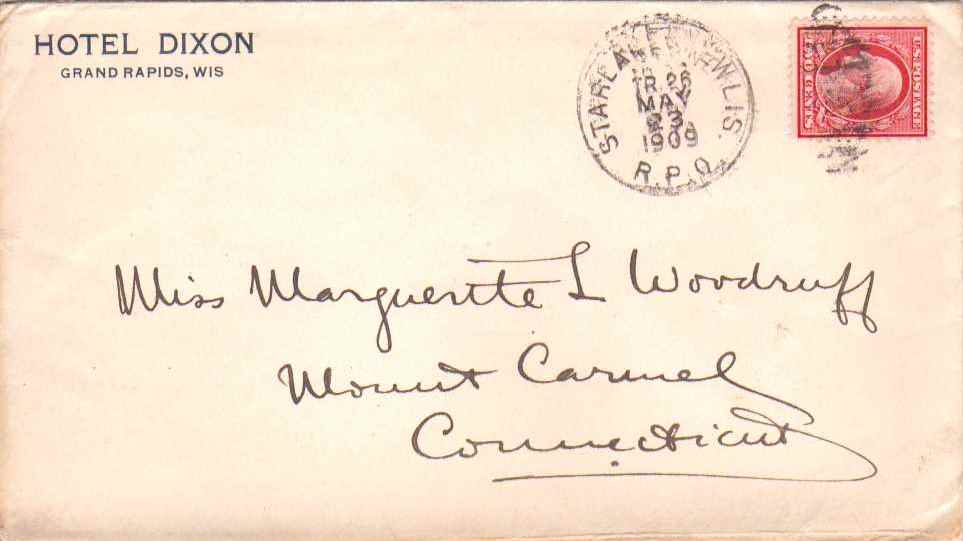 HOTEL DIXON
GRAND RAPIDS, WIS
STARLAKE WIS.
TR. 2
MAY
1909
R.P.O.
U.S. POSTAGE
Miss Marguerite L Woodruff
Mount Carmel
Connecticut